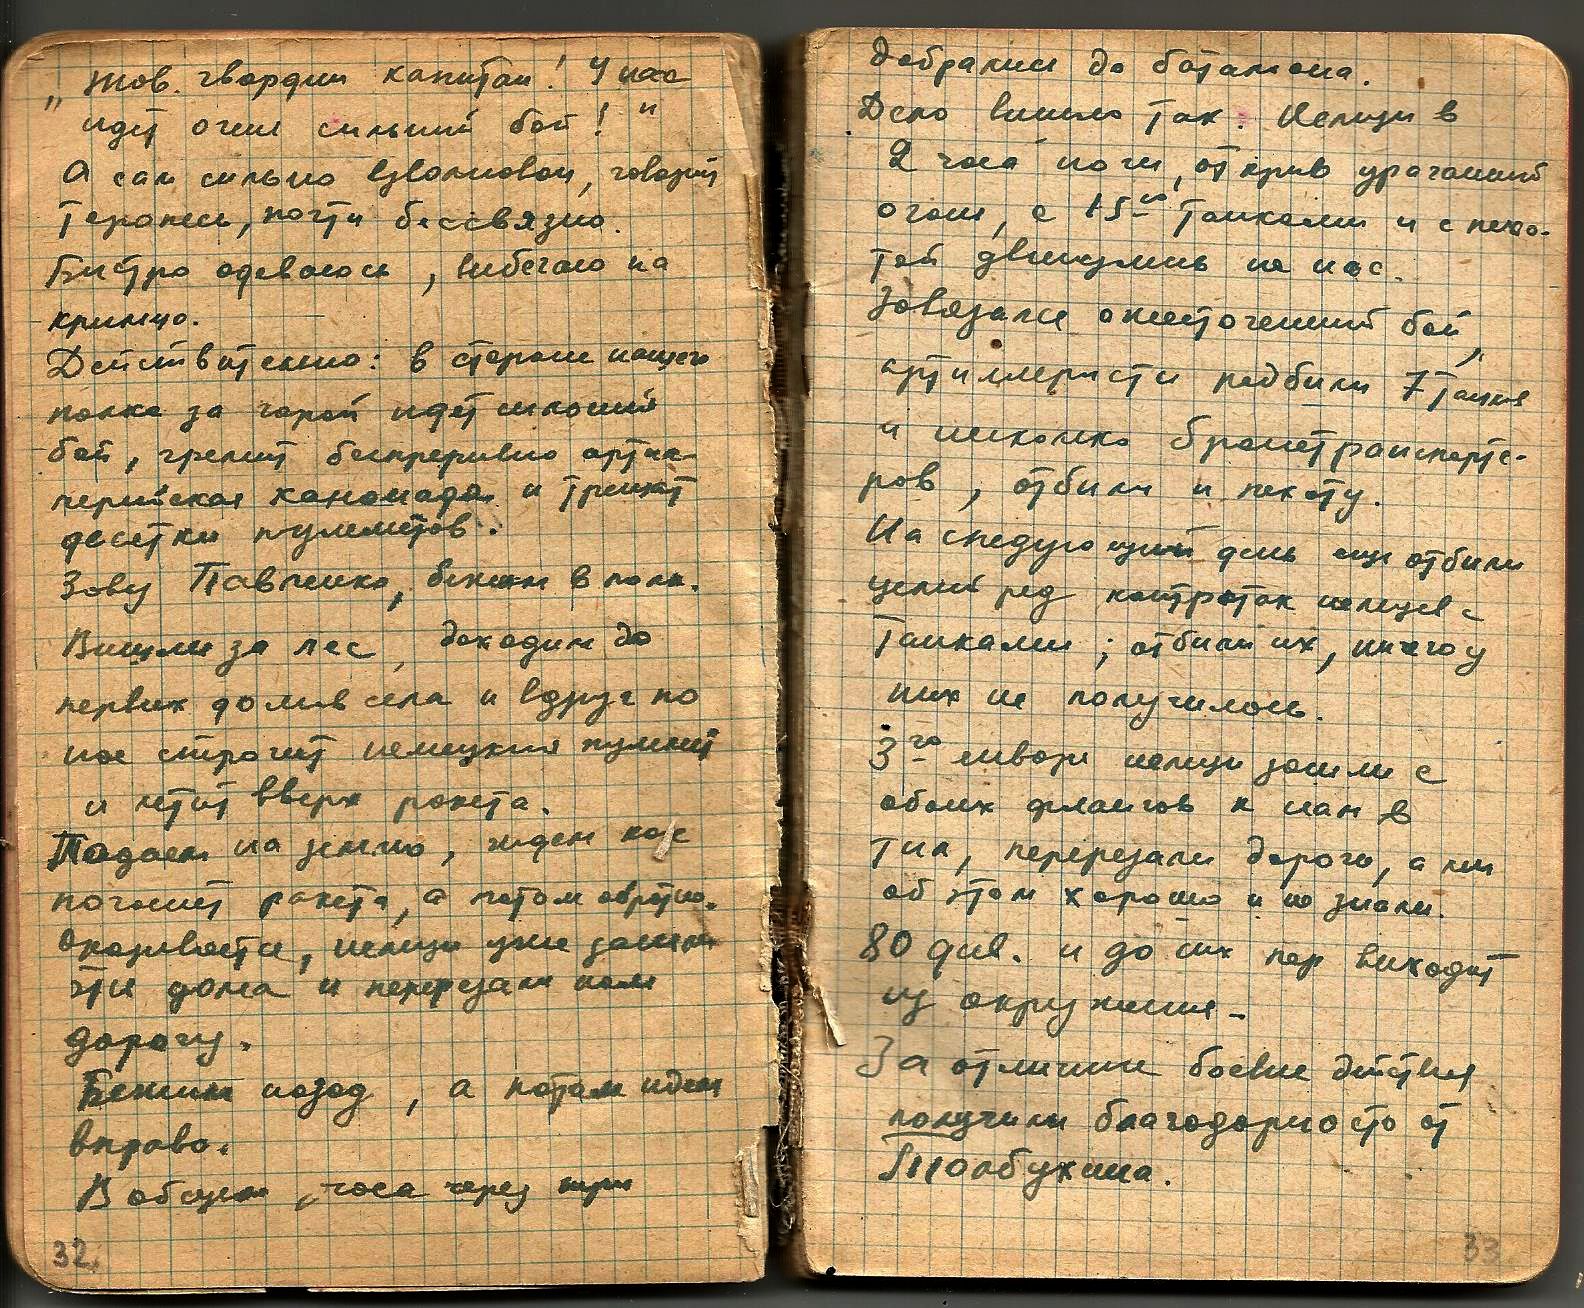 „Тов. гвардии капитан! У нас
идёт очень сильний бой!"
А сам сильно взволнован, говорит
торопясь, почти бессвязно.
Быстро одеваюсь, выбегаю на
крильцо.
Действительно: в стороне нашего
полка за горой идёт сильний
бой, гремит беспреривно артил-
лерийская канонада и трещат
десятки пулемётов.
Зову Павленко, бежим в полк.
Вишли за лес, доходим до
первих домов села и вдруг по
нас строчит немецкий пулемёт
и летит вверх ракета.
Падаем на землю, ждем пока
погаснет ракета, а потом обратно.
Оказивается, немци уже заняли
эти дома и перерезали нам
дорогу.
Бежим назад, а потом идем
вправо.
В общем, часа через три
32.
добрались до батальона.
Дело вишло так. Немци в
2 часа ночи, открив ураганний
огонь, с 15-ю танками и с пехо-
той двинулись на нас.
Завязался ожесточенний бой,
артиллеристи подбили 7 танков
и несколько бронетранспортё-
ров, отбили и пехоту.
На следующий день еще отбили
целий ряд контратак немцев с
танками; отбили их, ничего у
них не получилось.
3го января немци зашли с
обоих флангов к нам в
тил, перерезали дорогу, а ми
об этом хорошо и не знали.
80 див. и до сих пор виходит
из окружения.
За отличние боевие действия
получили благодарность от
Толбухина.
33